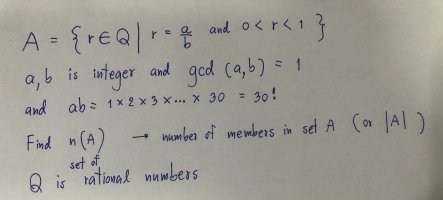 A = { r ∈ Q | r = a/b and 0 < r < 1 }
a, b is integer and gcd (a,b) = 1
and ab = 1 × 2 × 3 × ... × 30 = 30!
Find n(A) → number of members in set A (or |A|)
Q is set of rational numbers